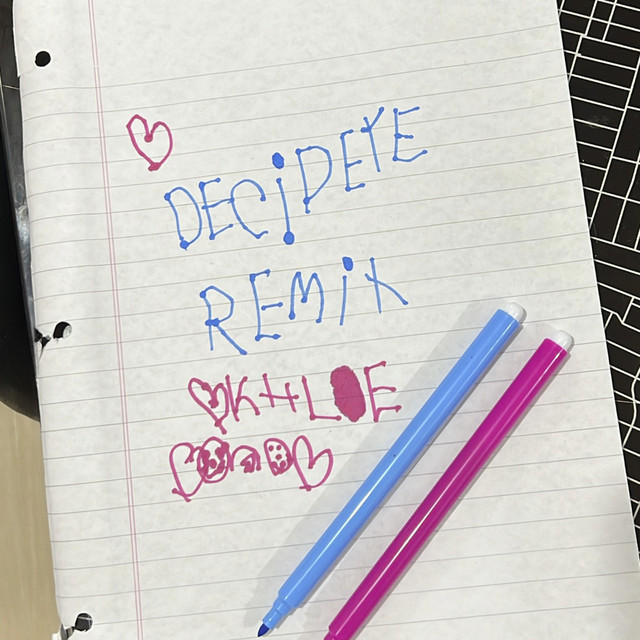 DECiPEYE
REMiX
KHLOE